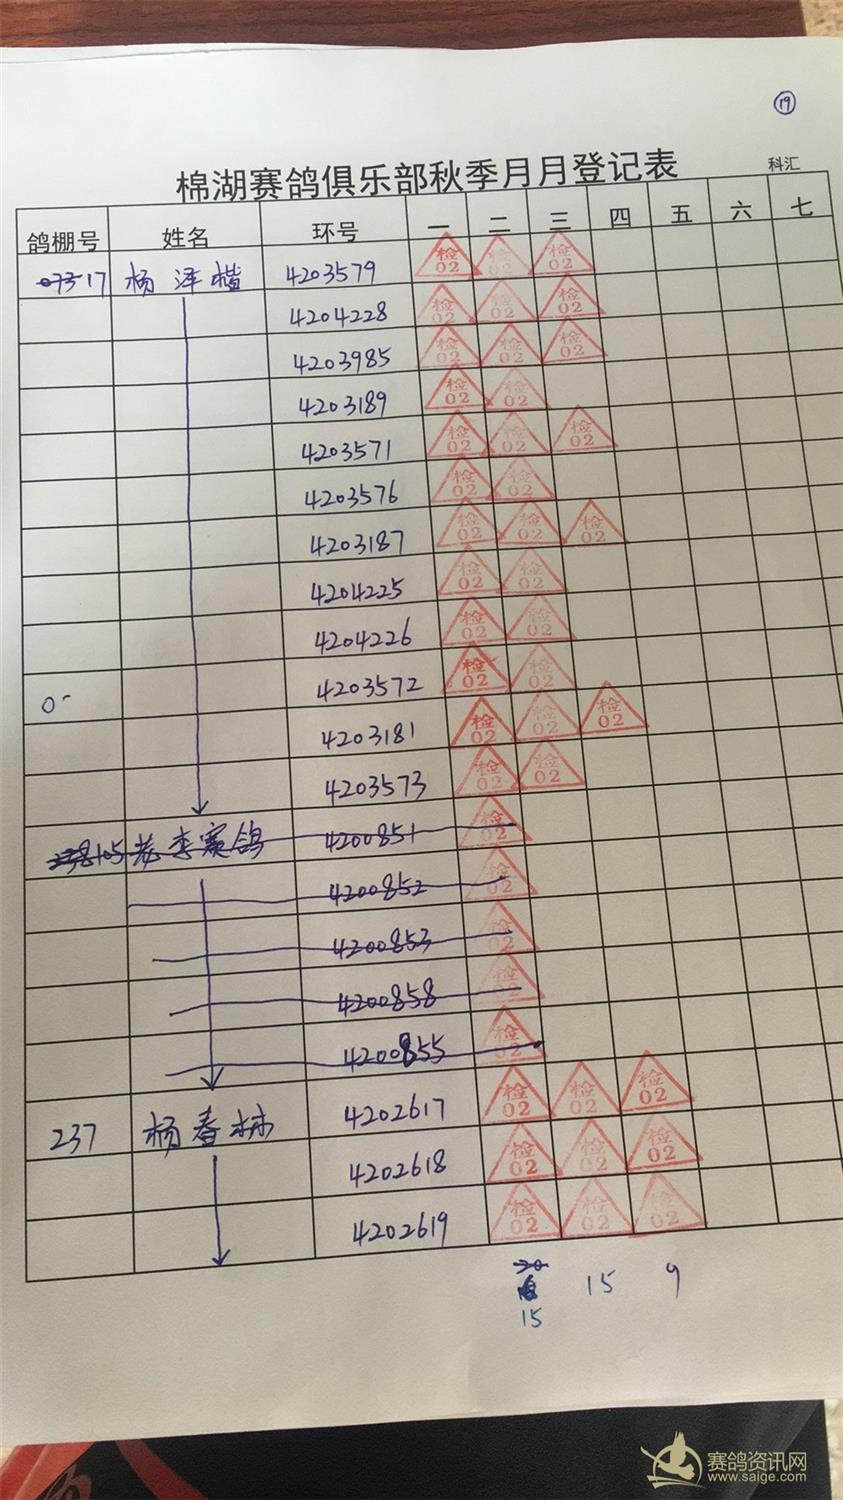 ⑲
棉湖赛鸽俱乐部秋季月月登记表 科汇
鸽棚号 姓名 环号 一 二 三 四 五 六 七
07317 杨泽楷 4203579 检02 检02 检02
4204228 检02 检02 检02
4203985 检02 检02 检02
4203189 检02 检02
4203571 检02 检02 检02
4203576 检02 检02
4203187 检02 检02 检02
4204225 检02 检02
4204226 检02 检02
0- 4203572 检02 检02
4203181 检02 检02 检02
4203573 检02 检02
李赛鸽 4200851 检02
4200852 检02
4200853 检02
4200858 检02
4200855 检02
237 杨春林 4202617 检02 检02 检02
4202618 检02 检02 检02
4202619 检02 检02 检02
20 15 9
15
赛鸽资讯网
www.saige.com